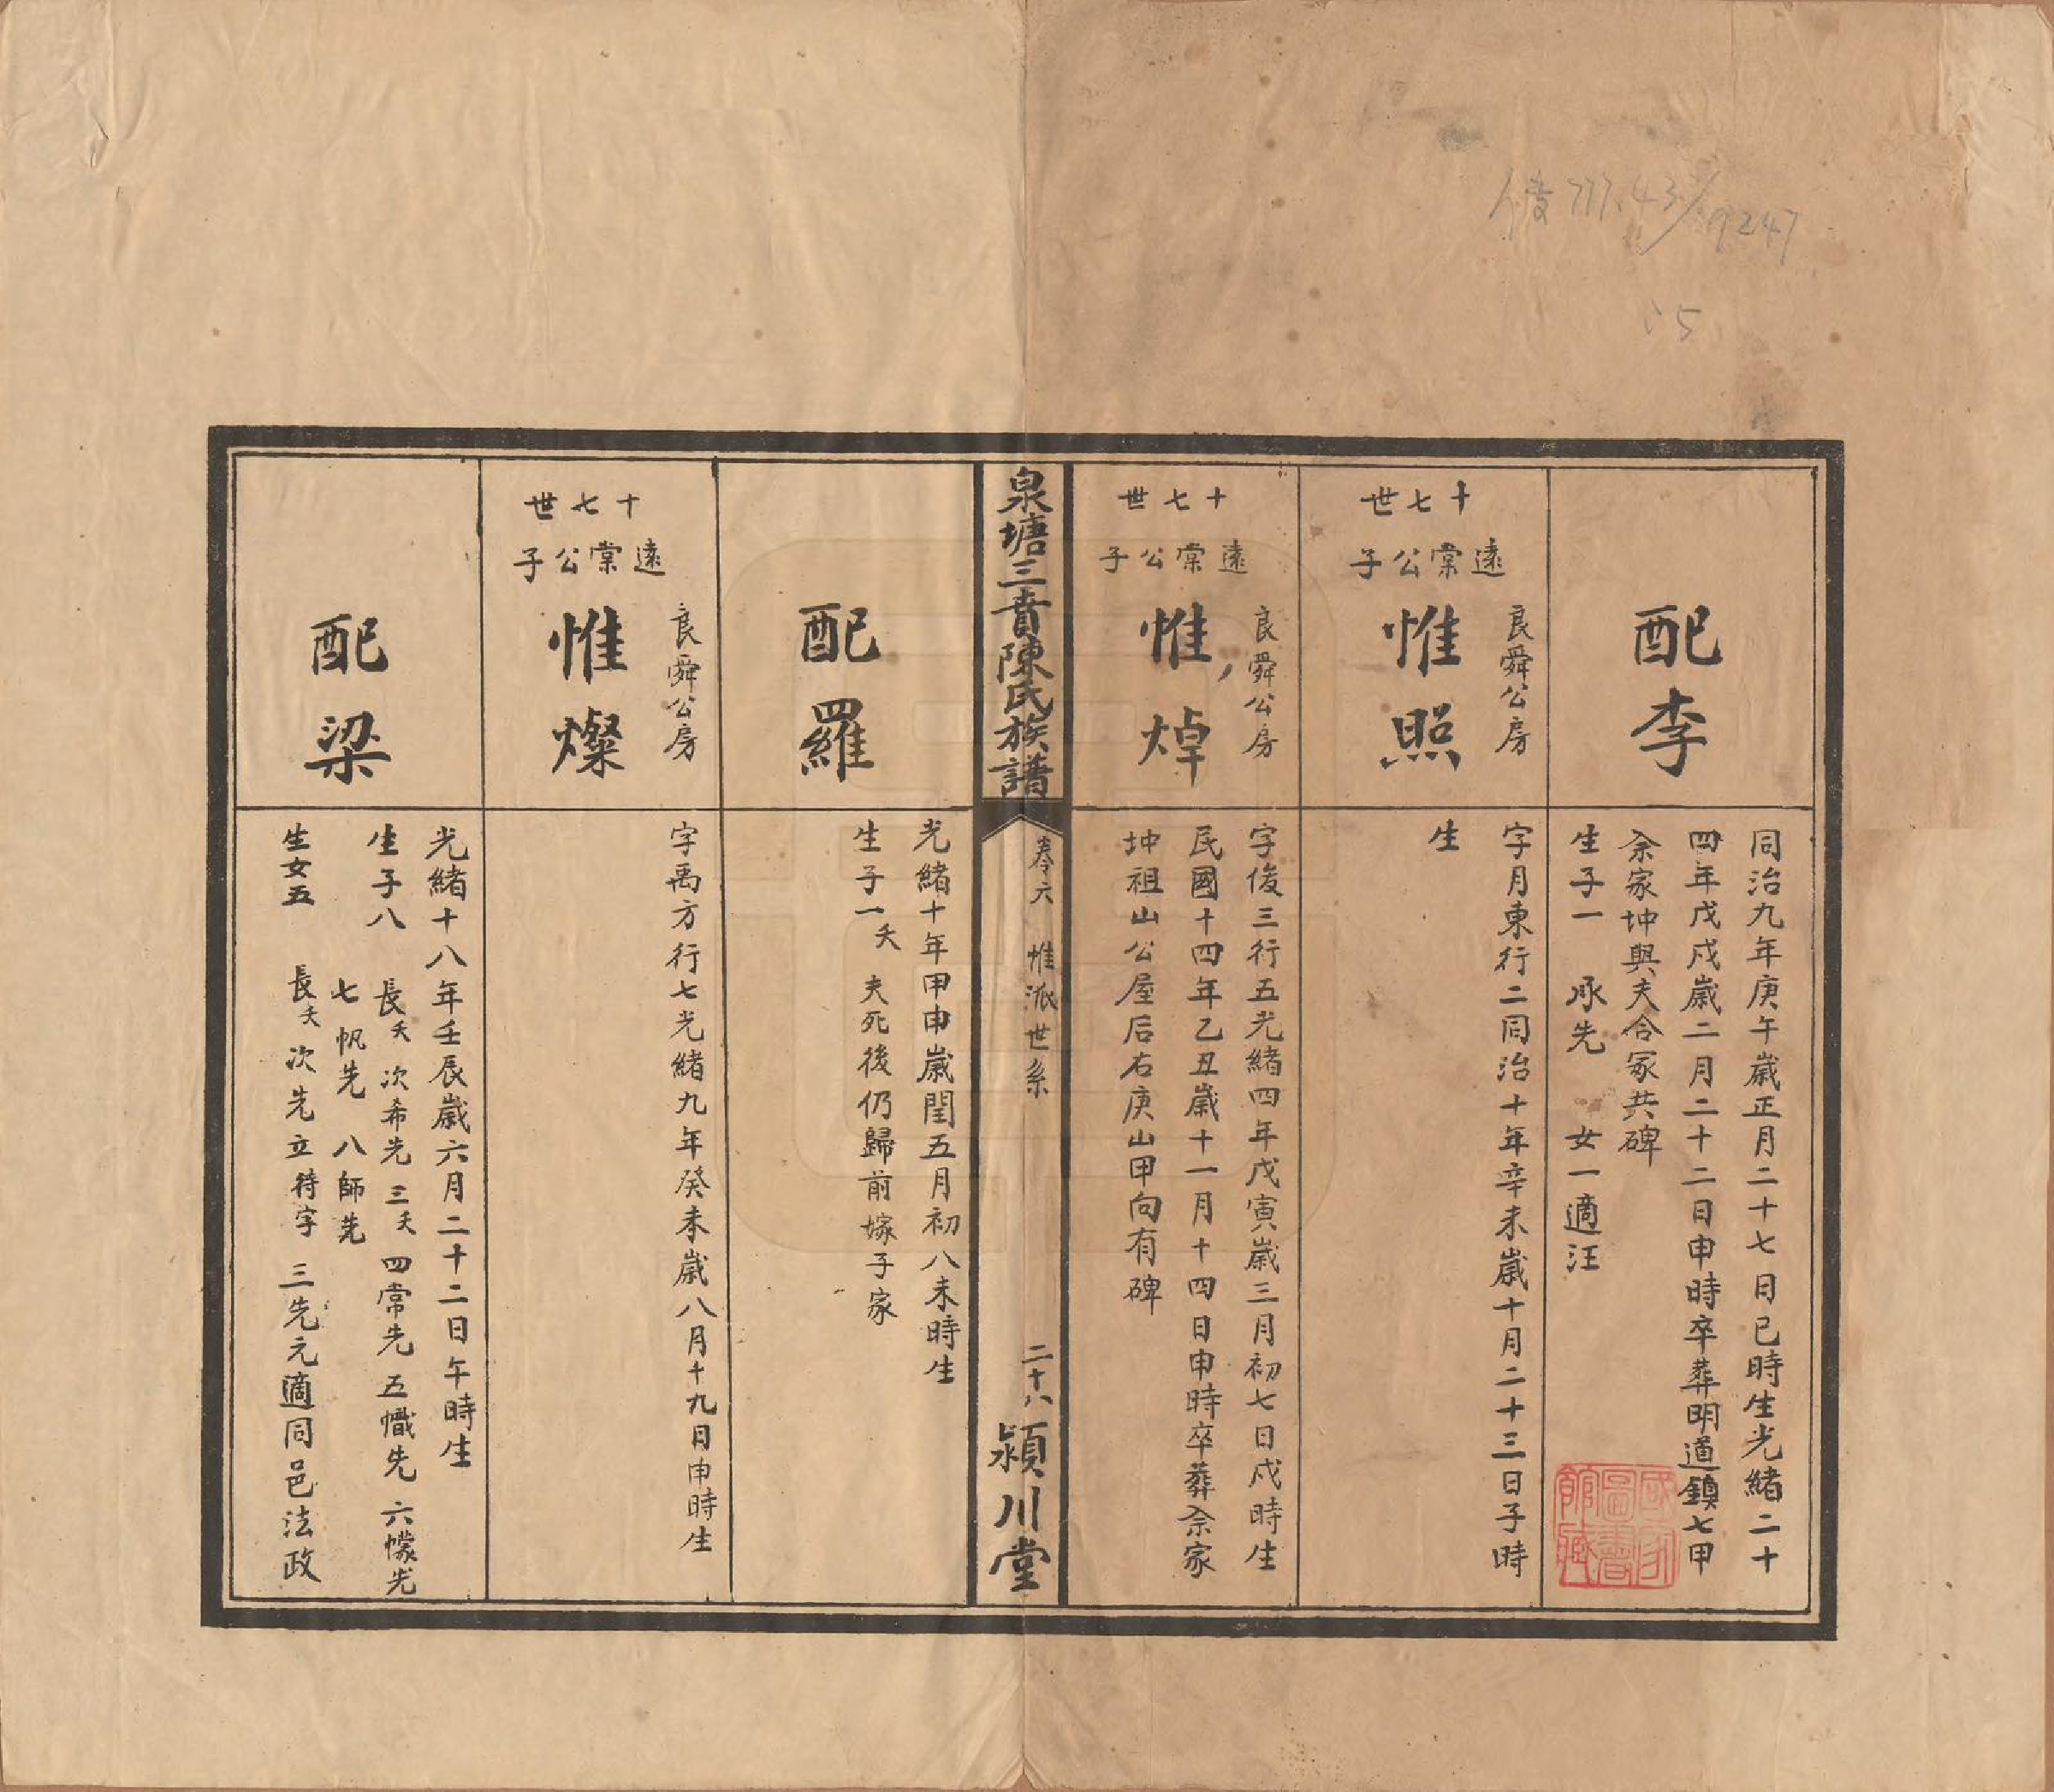 配李
同治九年庚午歲正月二十七日巳時生光緒二十
四年戊戌歲二月二十二日申時卒葬明道鎮七甲
余家坤與夫合冢共碑
生子一 承先 女一適汪
十七世
遠棠公子
良舜公房
惟照
字月東行二同治十年辛未歲十月二十三日子時
生
十七世
遠棠公子
良舜公房
惟焯
字俊三行五光緒四年戊寅歲三月初七日戌時生
民國十四年乙丑歲十一月十四日申時卒葬余家
坤祖山公屋后右庚山甲向有碑
泉塘三育陳氏族譜
卷六 惟派世系
二十八
潁川堂
配羅
光緒十年甲申歲閏五月初八未時生
生子一夭 夫死後仍歸前嫁子家
十七世
遠棠公子
良舜公房
惟燦
字禹方行七光緒九年癸未歲八月十九日申時生
配梁
光緒十八年壬辰歲六月二十二日午時生
生子八 長夭 次希先 三夭 四常先 五幟先 六幪先
七帆先 八師先
生女五 長夭 次先立待字 三先元適同邑法政
國家圖書館藏
777.43/9247
:5